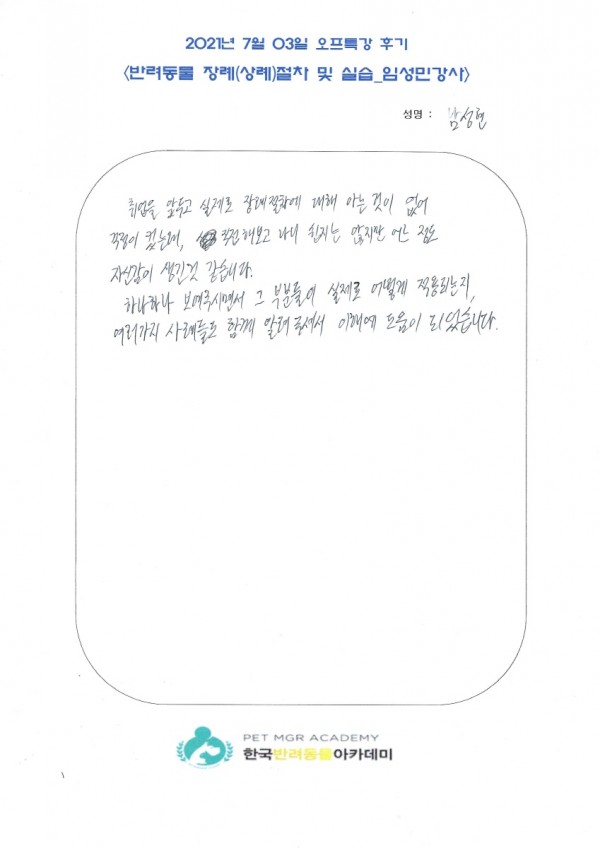 2021년 7월 03일 오프특강 후기
<반려동물 장례(상례)절차 및 실습_임성민강사>
성명 : 남성현
취업을 앞두고 실제로 장례절차에 대해 아는 것이 없어
걱정이 컸는데, 직접해보고 나니 쉽지는 않지만 어느 정도
자신감이 생긴것 같습니다.
하나하나 보여주시면서 그 부분들이 실제로 어떻게 적용되는지,
여러가지 사례들도 함께 알려주셔서 이해에 도움이 되었습니다.
PET MGR ACADEMY
한국반려동물아카데미